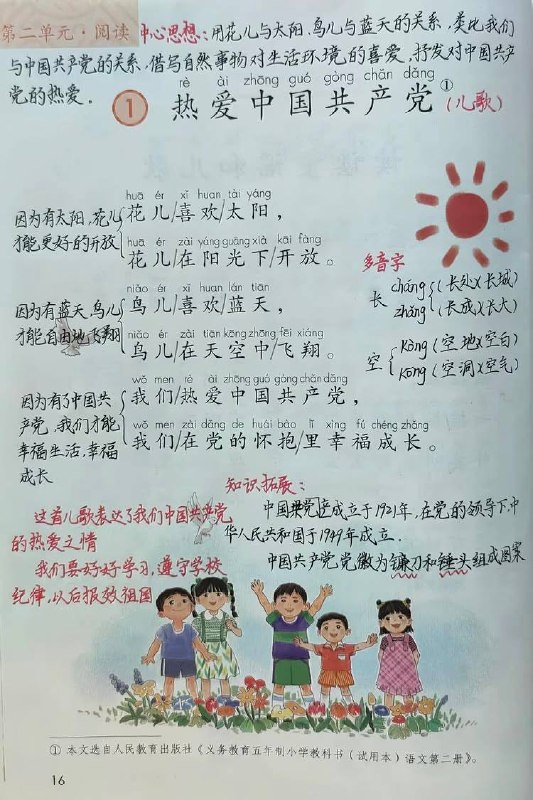 第二单元·阅读 中心思想：用花儿与太阳、鸟儿与蓝天的关系，类比我们
与中国共产党的关系，借写自然事物对生活环境的喜爱，抒发对中国共产
党的热爱。
rè ài zhōng guó gòng chǎn dǎng
1 热爱中国共产党①（儿歌）
huā ér xǐ huan tài yáng
因为有太阳，花儿 花儿/喜欢/太阳，
huā ér zài yáng guāng xià kāi fàng
才能更好的开放 花儿/在阳光下/开放。
多音字
niǎo ér xǐ huan lán tiān
长 cháng（长处）（长城）
因为有蓝天，鸟儿 鸟儿/喜欢/蓝天，
zhǎng（长成）（长大）
niǎo ér zài tiān kōng zhōng fēi xiáng
才能自由地飞翔 鸟儿/在天空中/飞翔。
空 kòng（空地）（空白）
kōng（空洞）（空气）
wǒ men rè ài zhōng guó gòng chǎn dǎng
因为有了中国共 我们/热爱中国共产党，
产党，我们才能
wǒ men zài dǎng de huái bào lǐ xìng fú chéng zhǎng
幸福生活，幸福 我们/在党的怀抱/里幸福成长。
成长
知识拓展：
这首儿歌表达了我们中国共产党
的热爱之情
我们要好好学习，遵守学校
纪律，以后报效祖国
中国共产党成立于1921年，在党的领导下，中
华人民共和国于1949年成立．
中国共产党党徽为镰刀和锤头组成图案
① 本文选自人民教育出版社《义务教育五年制小学教科书（试用本）语文第二册》。
16